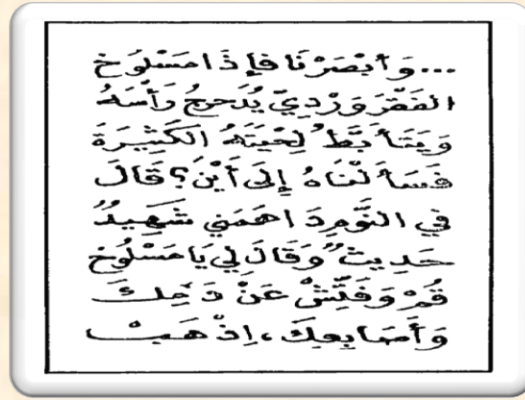 ...وَأَبْصَرْنَا فَإِذَا مَسْلُوخ
الفَقْرَوَرْدِيّ يُدَحرِجُ رَأْسَهُ
وَيَتَأَبَّطُ لِحْيَتَهُ الكَثِيرَةَ
فَسَأَلْنَاهُ إِلَى أَيْنَ؟ قَالَ
في النَّومِ دَاهَمَنِي شَهِيدٌ
حَدِيثٌ وَقَالَ لِي يَا مَسْلُوخ
قُمْ وَفَتِّشْ عَنْ دَمِكَ
وَأَصَابِعِكَ، اِذْهَبْ